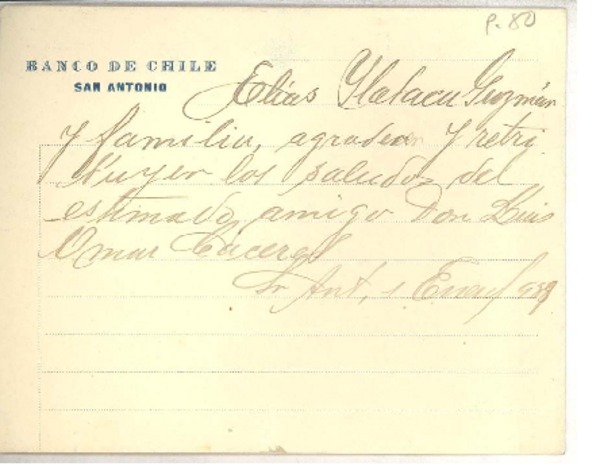 P. 80
BANCO DE CHILE
SAN ANTONIO
Elías Guzmán
y familia, agradecen y retri
buyen los saludos del
estimado amigo Don Luis
Omar Cáceres
Sn Ant, 1 Enero